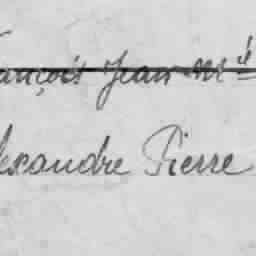 ançois Jean M
lexandre Pierre